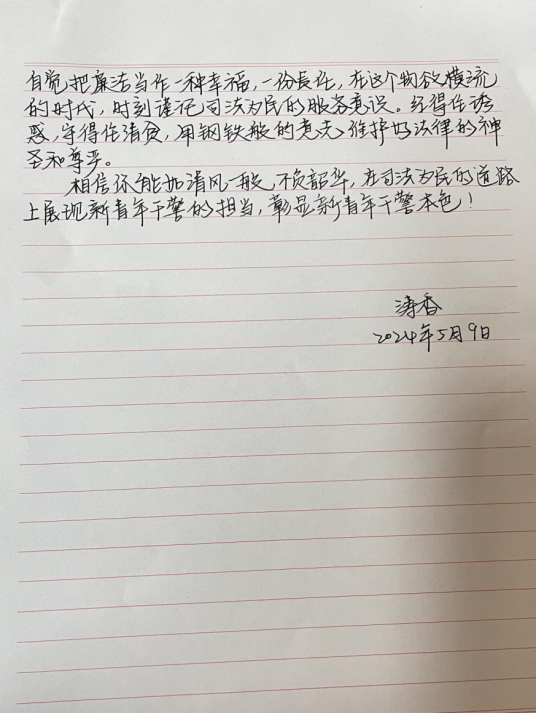 自觉把廉洁当作一种幸福,一份责任,在这个物欲横流
的时代,时刻谨记司法为民的服务意识。经得住诱
惑,守得住清贫,用钢铁般的意志维护好法律的神
圣和尊严。
相信你能如清风一般,不负韶华,在司法为民的道路
上展现新青年干警的担当,彰显新青年干警本色!
涛香
2024年5月9日